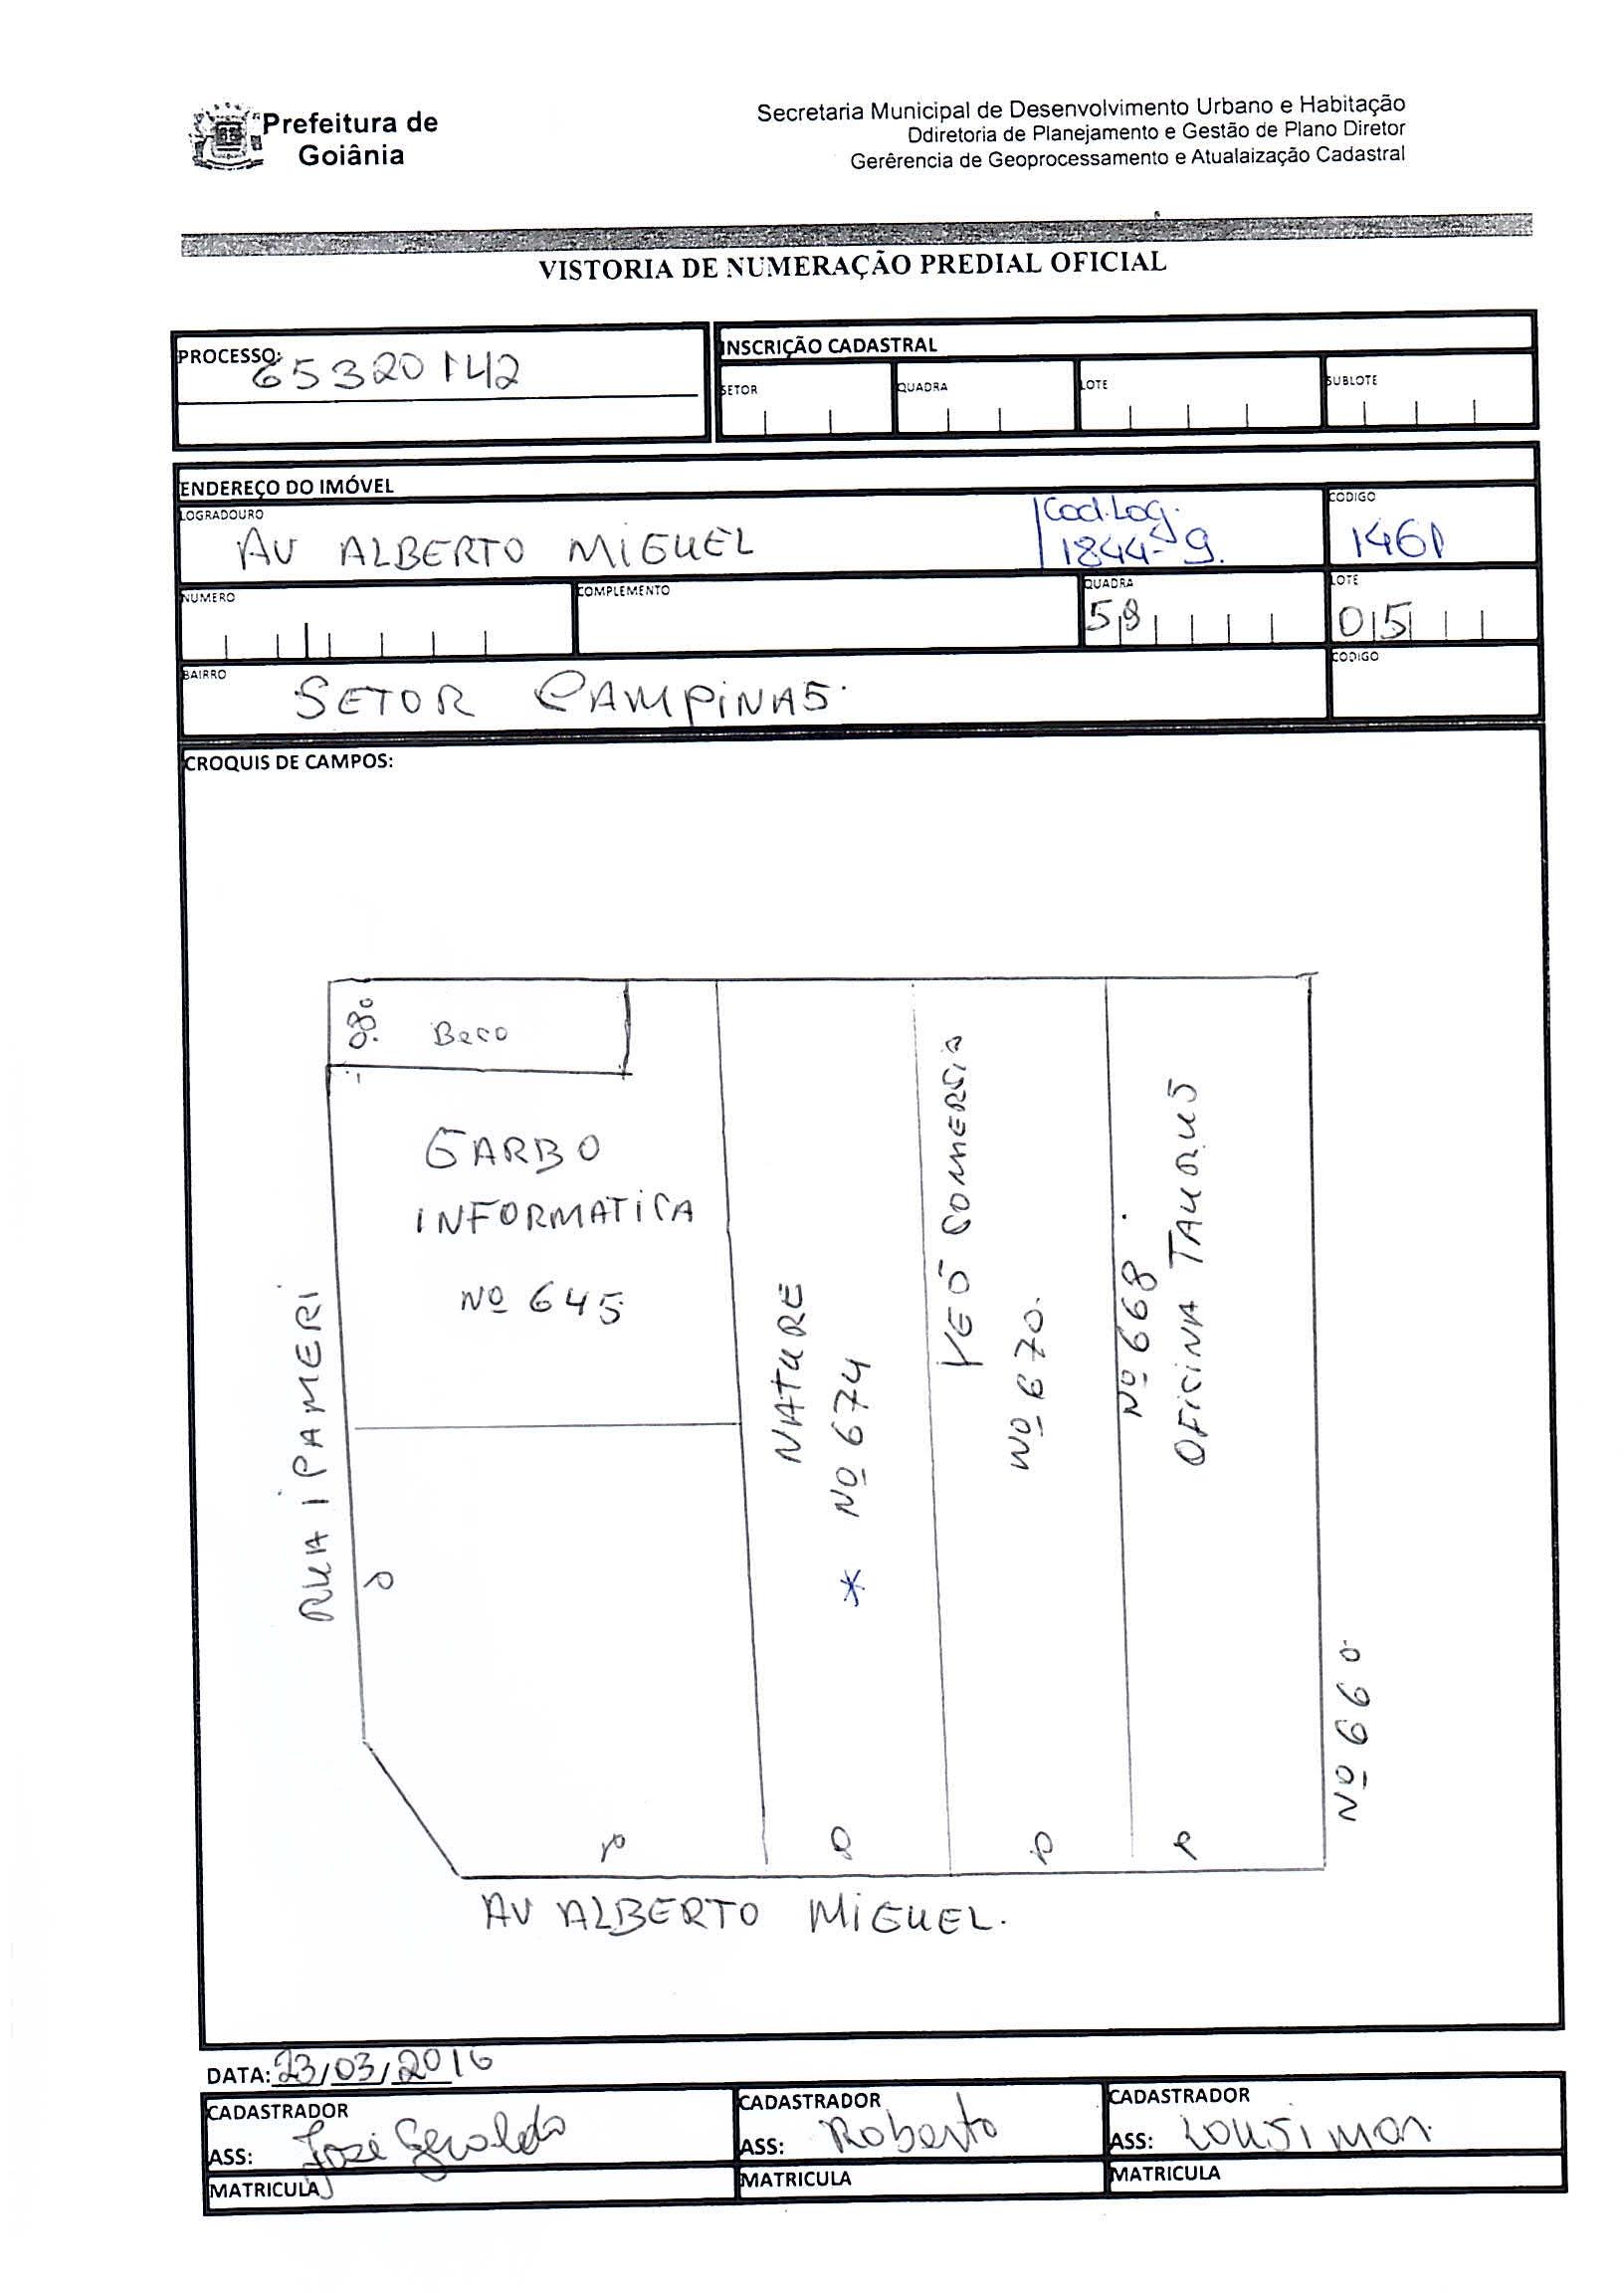 Prefeitura de
Goiânia
Secretaria Municipal de Desenvolvimento Urbano e Habitação
Ddiretoria de Planejamento e Gestão de Plano Diretor
Gerêrencia de Geoprocessamento e Atualaização Cadastral
VISTORIA DE NUMERAÇÃO PREDIAL OFICIAL
PROCESSO: 65320142
INSCRIÇÃO CADASTRAL
SETOR QUADRA LOTE SUBLOTE
ENDEREÇO DO IMÓVEL
LOGRADOURO CODIGO
AV ALBERTO MIGUEL Cod.Log. 1461
1844-9.
NUMERO COMPLEMENTO QUADRA LOTE
58 05
BAIRRO CODIGO
SETOR CAMPINAS.
CROQUIS DE CAMPOS:
Beco
GARBO
INFORMATICA
Nº 645
RUA IPAMERI
NATURE
* Nº 674
COMERSIO
Nº 670.
Nº 668.
OFICINA TAURUS
Nº 660
AV ALBERTO MIGUEL.
DATA: 23/03/2016
CADASTRADOR CADASTRADOR CADASTRADOR
ASS: José Geraldo ASS: Roberto ASS: Lousimar
MATRICULA MATRICULA MATRICULA